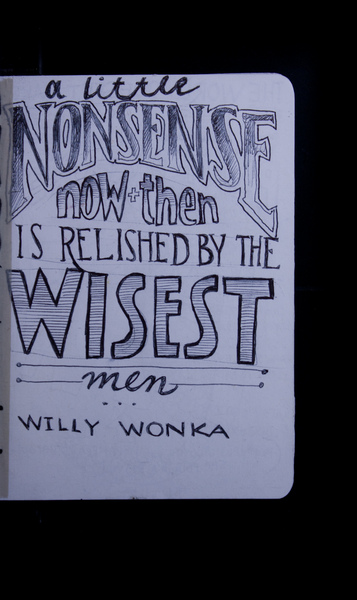 a little
NONSENSE
now + then
IS RELISHED BY THE
WISEST
men
...
WILLY WONKA